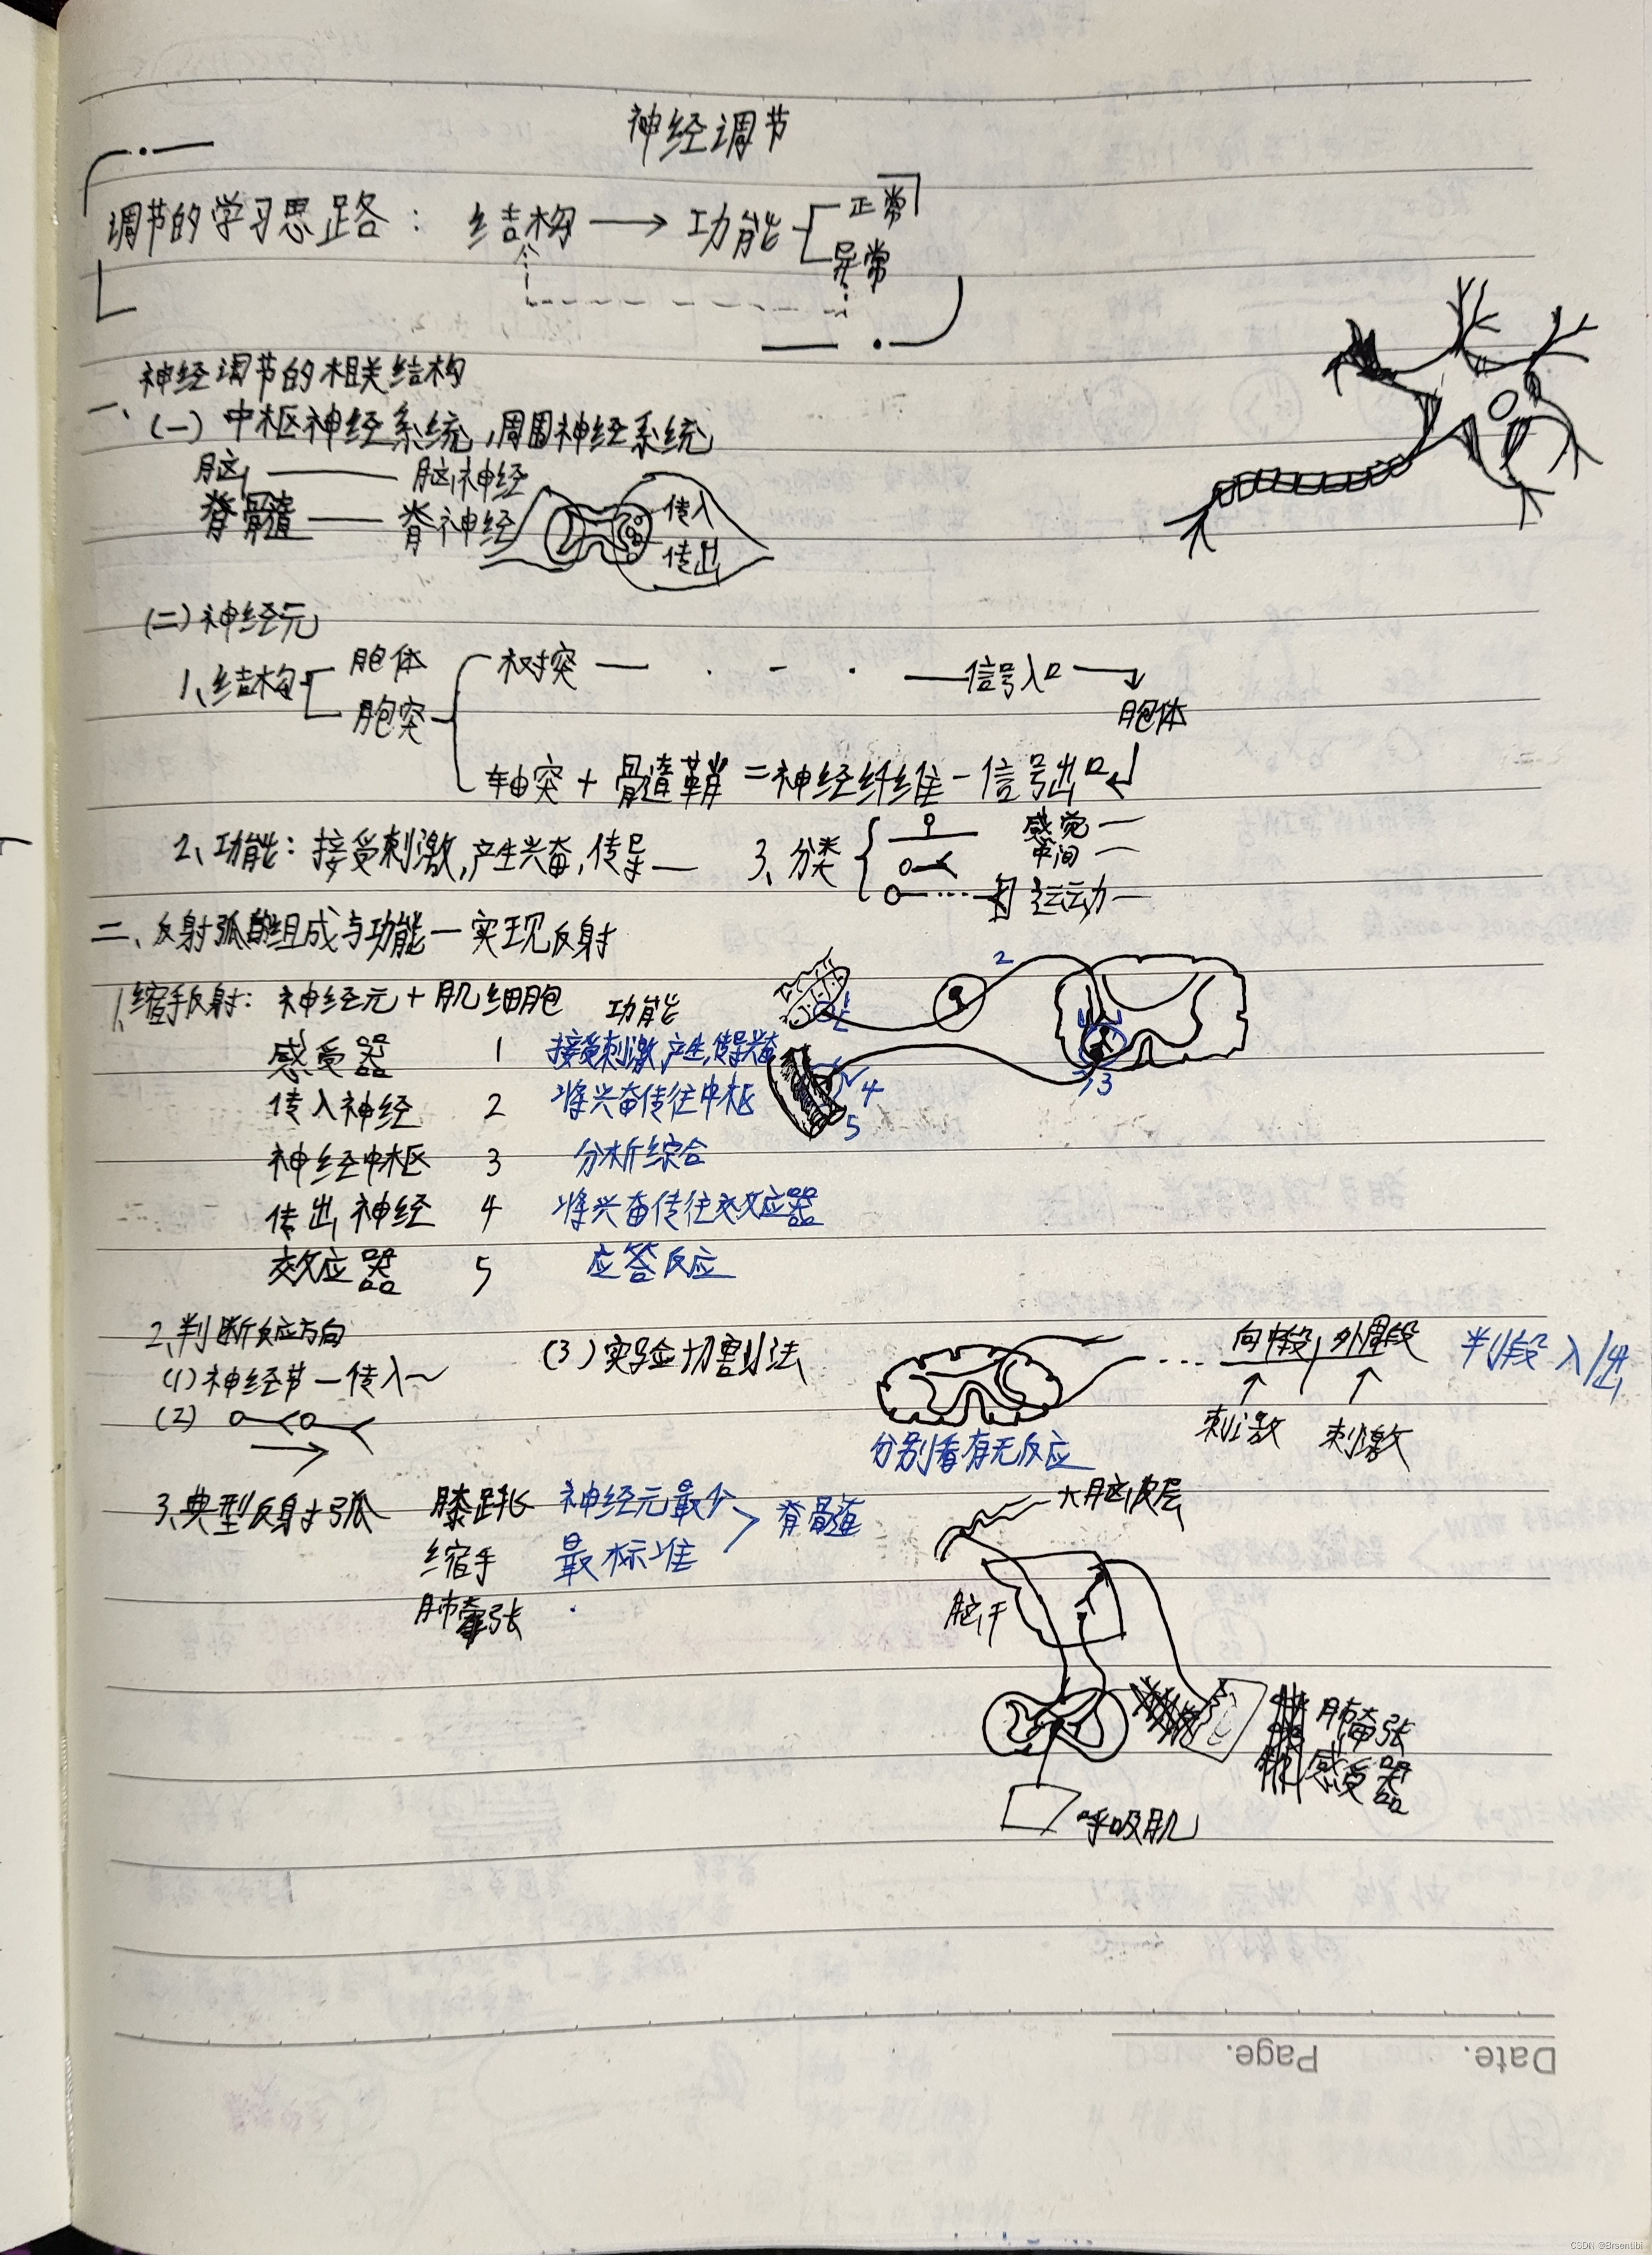 神经调节
调节的学习思路： 结构 → 功能 正常
异常
神经调节的相关结构
一、(一) 中枢神经系统, 周围神经系统
脑 —— 脑神经
脊髓 —— 脊神经 传入
传出
(二) 神经元
1、结构 胞体 树突 — · - · — 信号入口
胞突 胞体
轴突 + 髓鞘 = 神经纤维 - 信号出口
2、功能：接受刺激,产生兴奋,传导— 3、分类 感觉—
中间—
运动—
二、反射弧的组成与功能 — 实现反射
1、缩手反射： 神经元 + 肌细胞 功能
感受器 1 接受刺激,产生,传导兴奋
传入神经 2 将兴奋传往中枢
神经中枢 3 分析综合
传出神经 4 将兴奋传往效应器
效应器 5 应答反应
1 2 3 4 5
2、判断反应方向 (3) 实验切割法 … 向中段, 外周段 判段 入/出
(1) 神经节 — 传入~ 刺激 刺激
(2) 分别看有无反应
3、典型反射弧 膝跳 神经元最少 > 脊髓 大脑皮层
缩手 最标准
肺牵张 脑干
肺牵张
感受器
呼吸肌
Date. Page.
CSDN @Brsentibi